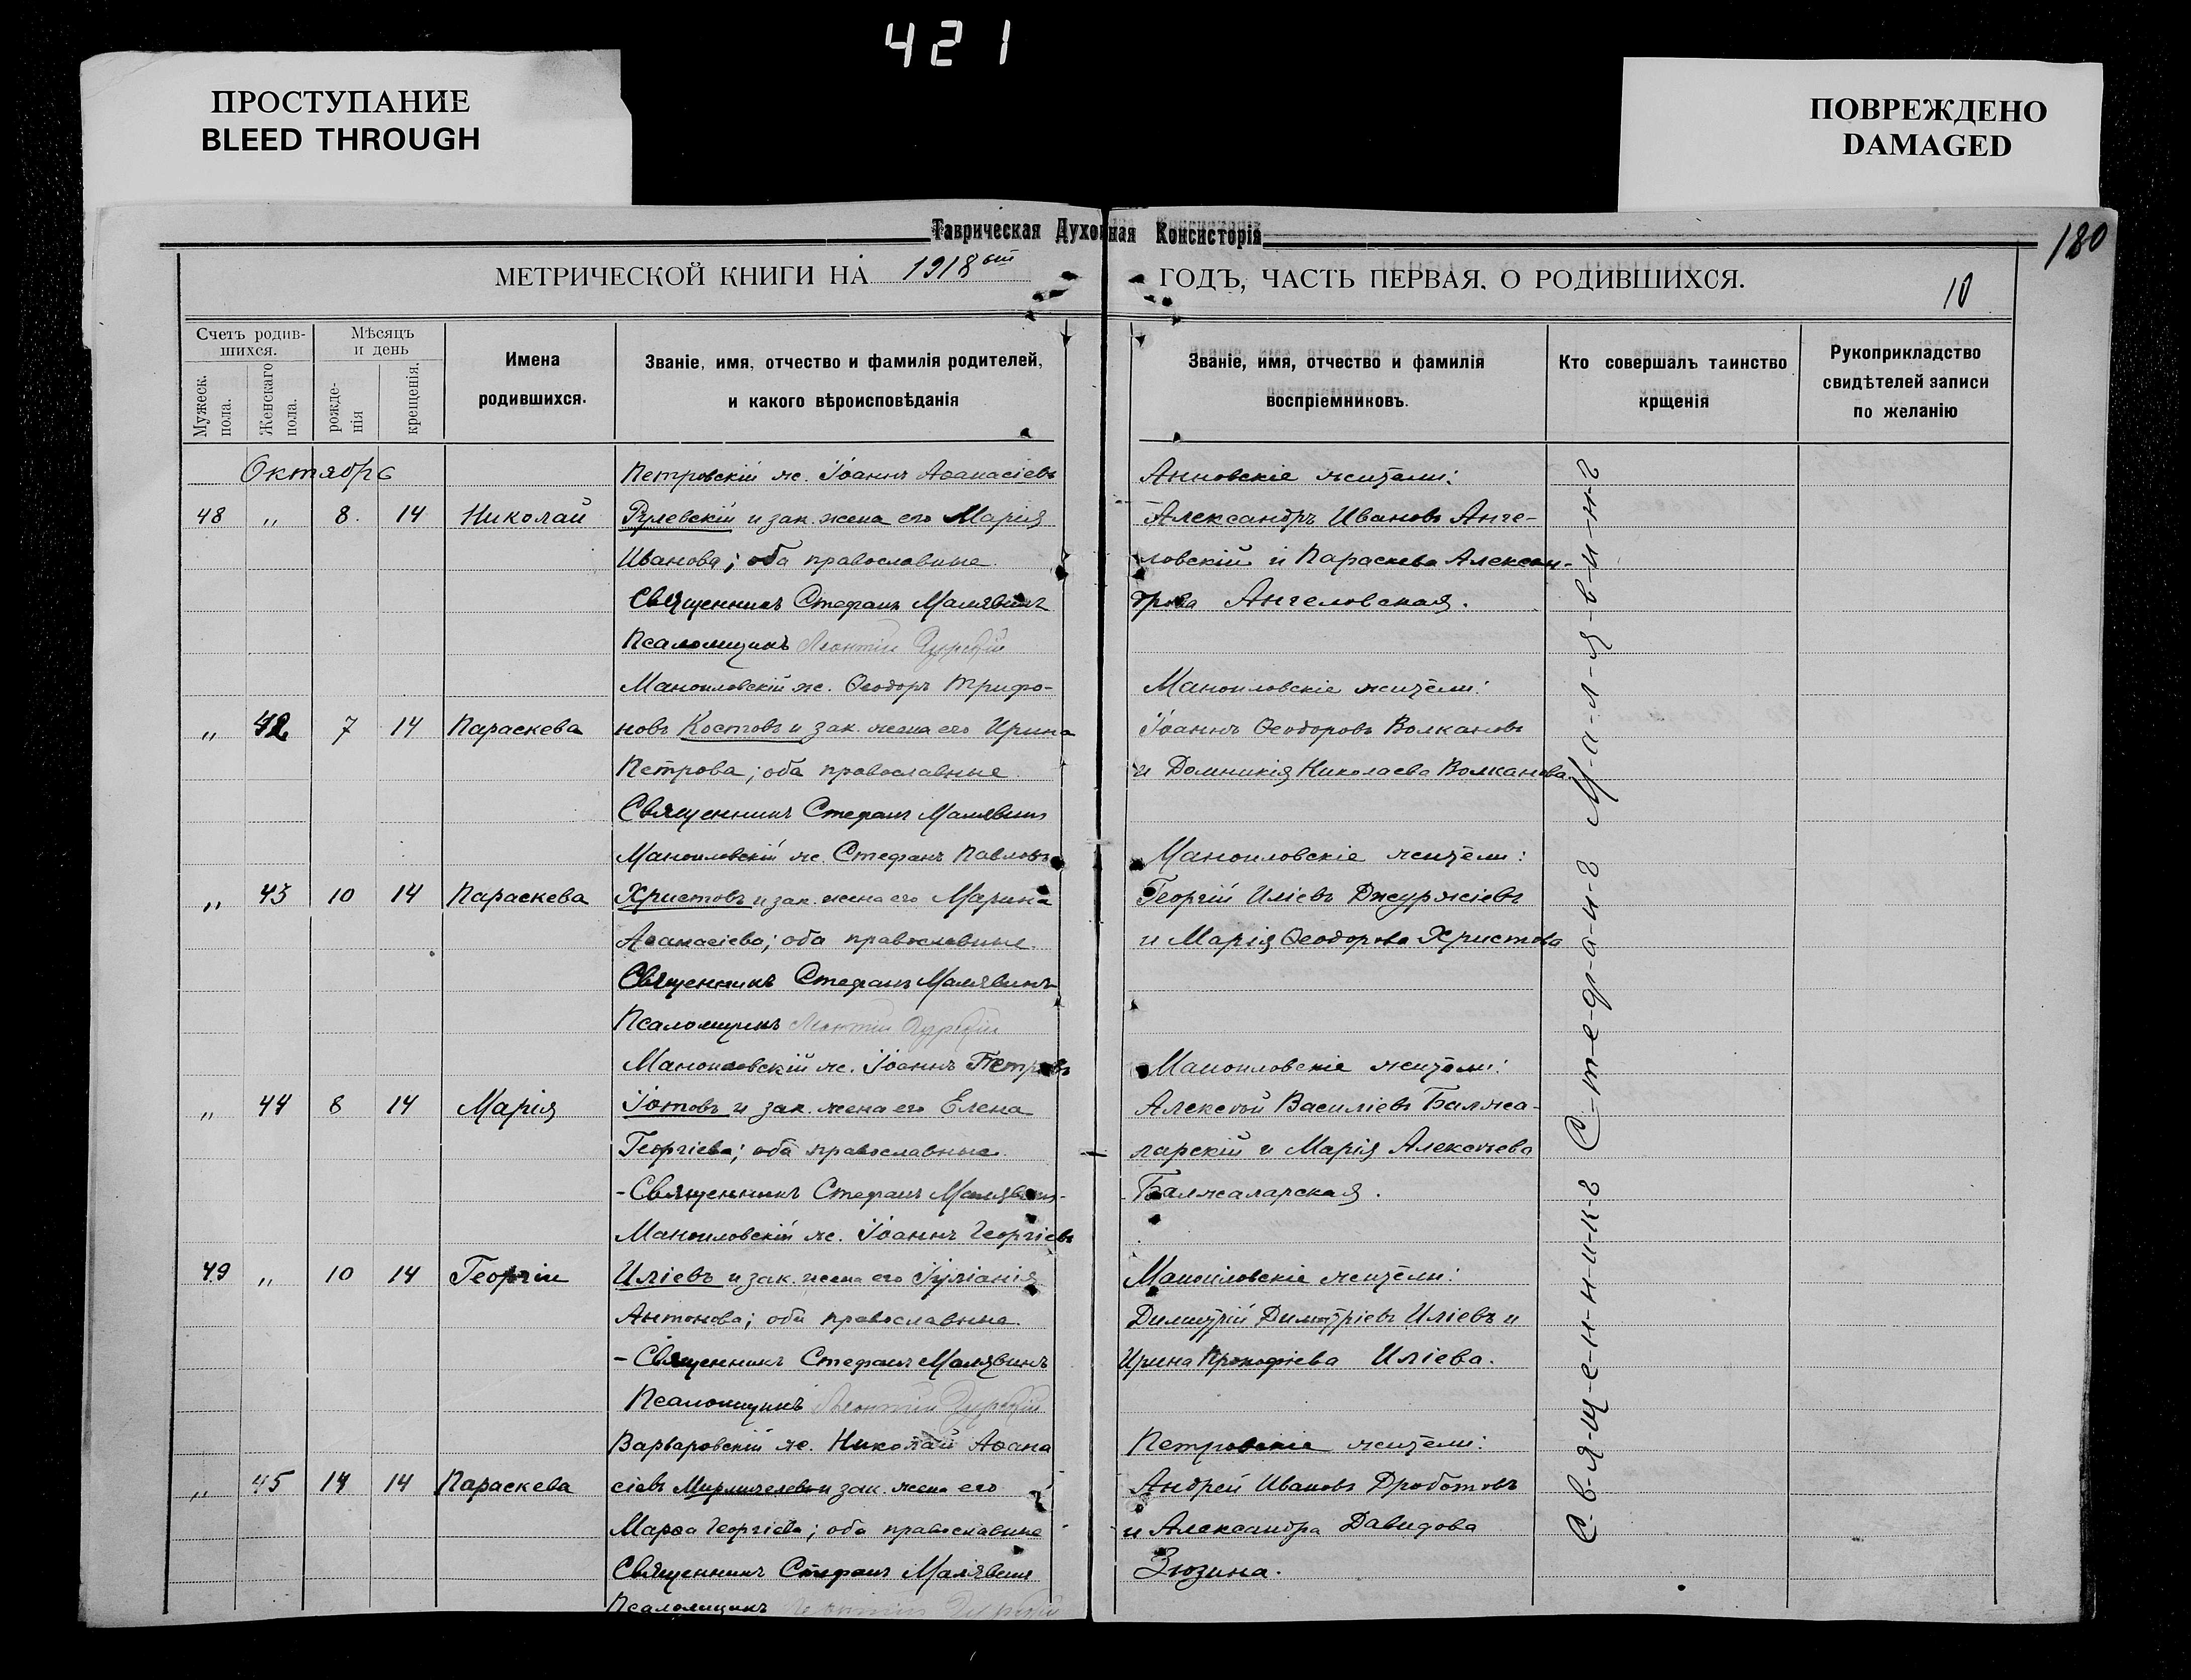 421
ПРОСТУПАНИЕ
BLEED THROUGH
ПОВРЕЖДЕНО
DAMAGED
Таврическая Духовная Консисторія
180
МЕТРИЧЕСКОЙ КНИГИ НА 1918 ый
ГОДЪ, ЧАСТЬ ПЕРВАЯ, О РОДИВШИХСЯ.
10
Счетъ родив-
шихся.
Мужеск.
пола.
Женскаго
пола.
Мѣсяцъ
и день
рожде-
нія
крещенія.
Имена
родившихся.
Званіе, имя, отчество и фамилія родителей,
и какого вѣроисповѣданія
Званіе, имя, отчество и фамилія
воспріемниковъ.
Кто совершалъ таинство
крщенія
Рукоприкладство
свидѣтелей записи
по желанію
Октябрь
Петровскій ж. Іоаннъ Аѳанасіевъ
48 " 8. 14 Николай
и зак. жена его Марія
Иванова; оба православные.
Священникъ Стефанъ Малявинъ
Псаломщикъ Леонтій
Маноиловскій ж. Ѳеодоръ Трифо-
" 42 7 14 Параскева
новъ Костовъ и зак. жена его Ирина
Петрова; оба православные.
Священникъ Стефанъ Малявинъ
Маноиловскій ж. Стефанъ Павловъ
" 43 10 14 Параскева
Христовъ и зак. жена его Марина
Аѳанасіева; оба православные.
Священникъ Стефанъ Малявинъ
Псаломщикъ Леонтій
Маноиловскій ж. Іоаннъ Петровъ
" 44 8 14 Марія
Іотовъ и зак. жена его Елена
Георгіева; оба православные.
- Священникъ Стефанъ Малявинъ-
Маноиловскій ж. Іоаннъ Георгіевъ
49 " 10 14 Георгій
Иліевъ и зак. жена его Іуліанія
Антонова; оба православные.
- Священникъ Стефанъ Малявинъ
Псаломщикъ Леонтій
Варваровскій ж. Николай Аѳана
" 45 14 14 Параскева
сіевъ и зак. жена его
Марѳа Георгіева; оба православные
Священникъ Стефанъ Малявинъ
Псаломщикъ Леонтій
Анновскіе жители:
Александръ Ивановъ Анге-
ловскій и Параскева Алексан-
дрова Ангеловская.
Маноиловскіе жители:
Іоаннъ Ѳеодоровъ Волкановъ
и Домникія Николаева Волканова.
Маноиловскіе жители:
Георгій Иліевъ Джуржіевъ
и Марія Ѳеодорова Христова
Маноиловскіе жители:
Алексѣй Василіевъ Балжа-
ларскій и Марія Алексѣева
Балжаларская.
Маноиловскіе жители:
Димитрій Димитріевъ Иліевъ и
Ирина Прокофіева Иліева.
Петровскіе жители:
Андрей Ивановъ Дроботовъ
и Александра Давидова
Зюзина.
С-в-я-щ-е-н-н-и-к-ъ С-т-е-ф-а-н-ъ М-а-л-я-в-и-н-ъ